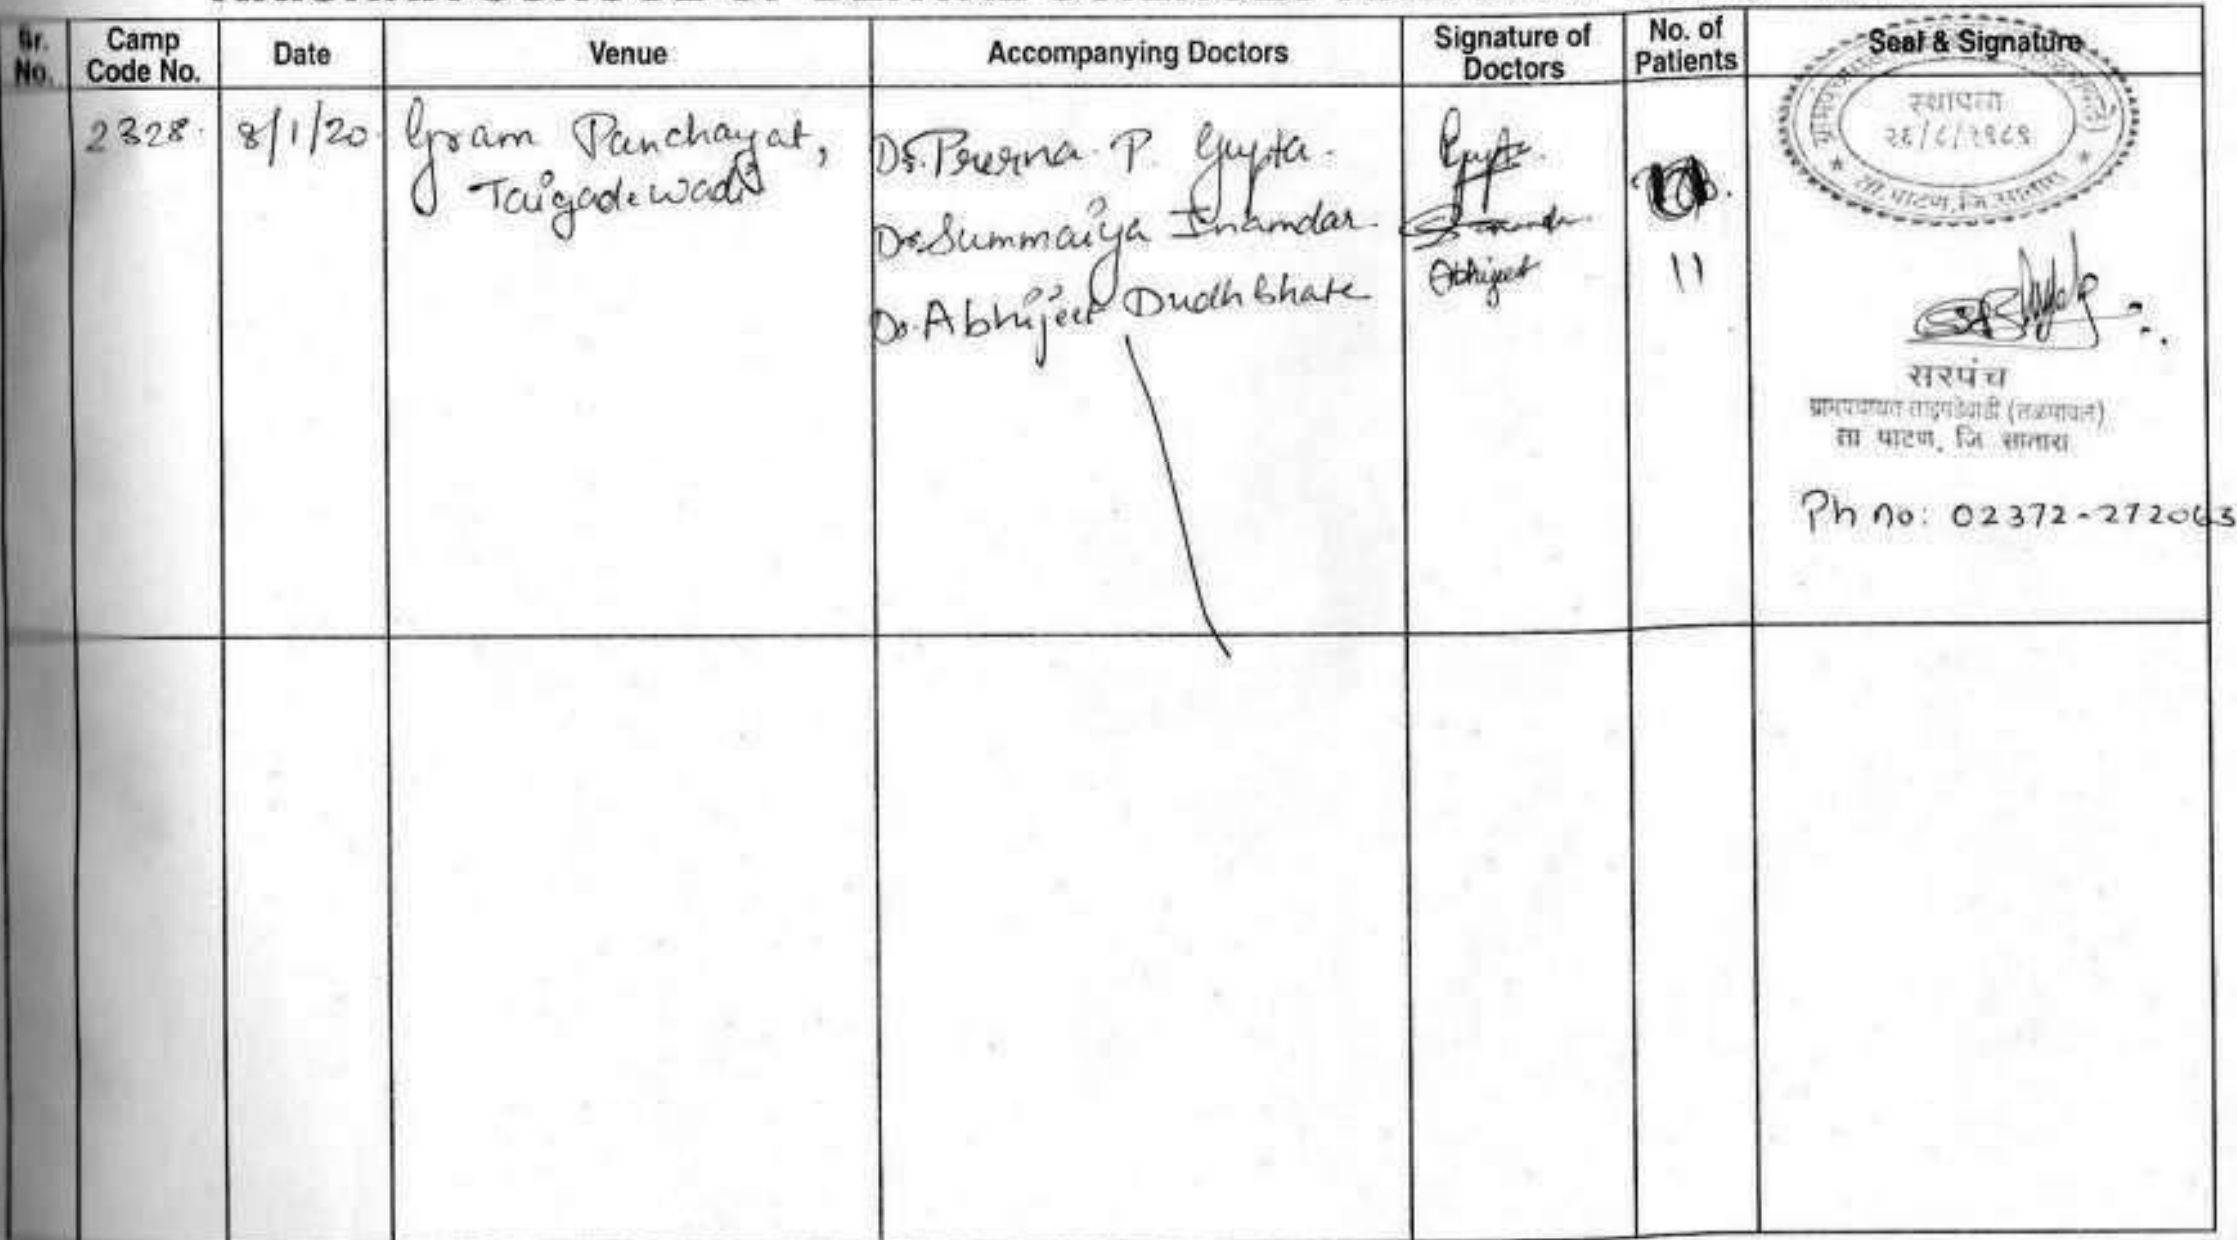 Sr. No.
Camp Code No.
Date
Venue
Accompanying Doctors
Signature of Doctors
No. of Patients
Seal & Signature
2328.
8/1/20
Gram Panchayat,
Taigadewadi
Dr. Prerna P. Gupta.
Dr. Summaiya Inamdar.
Dr. Abhijeet Dudhbhate
Gupta
Abhijeet
11
स्थापना
ता. पाटण, जि. सातारा
सरपंच
ग्रामपंचायत ताइगडेवाडी (तळमावले)
ता पाटण, जि सातारा
Ph no: 02372-272063